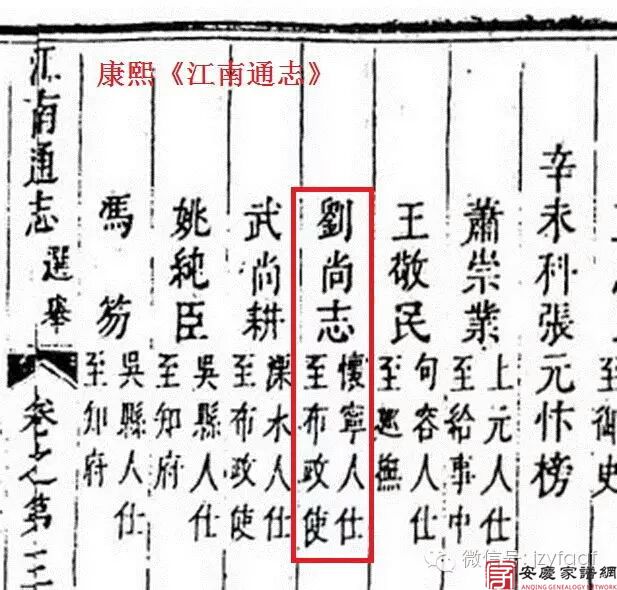 康熙《江南通志》
至御史
辛未科張元忭榜
蕭崇業 上元人仕至給事中
王敬民 句容人仕至巡撫
劉尚志 懷寧人仕至布政使
武尚耕 溧水人仕至布政使
姚純臣 吳縣人仕至知府
馮笏 吳縣人仕至知府
江南通志 選舉 卷之第三
微信号: jzyfqcf
安慶家譜網
ANQING GENEALOGY NETWORK